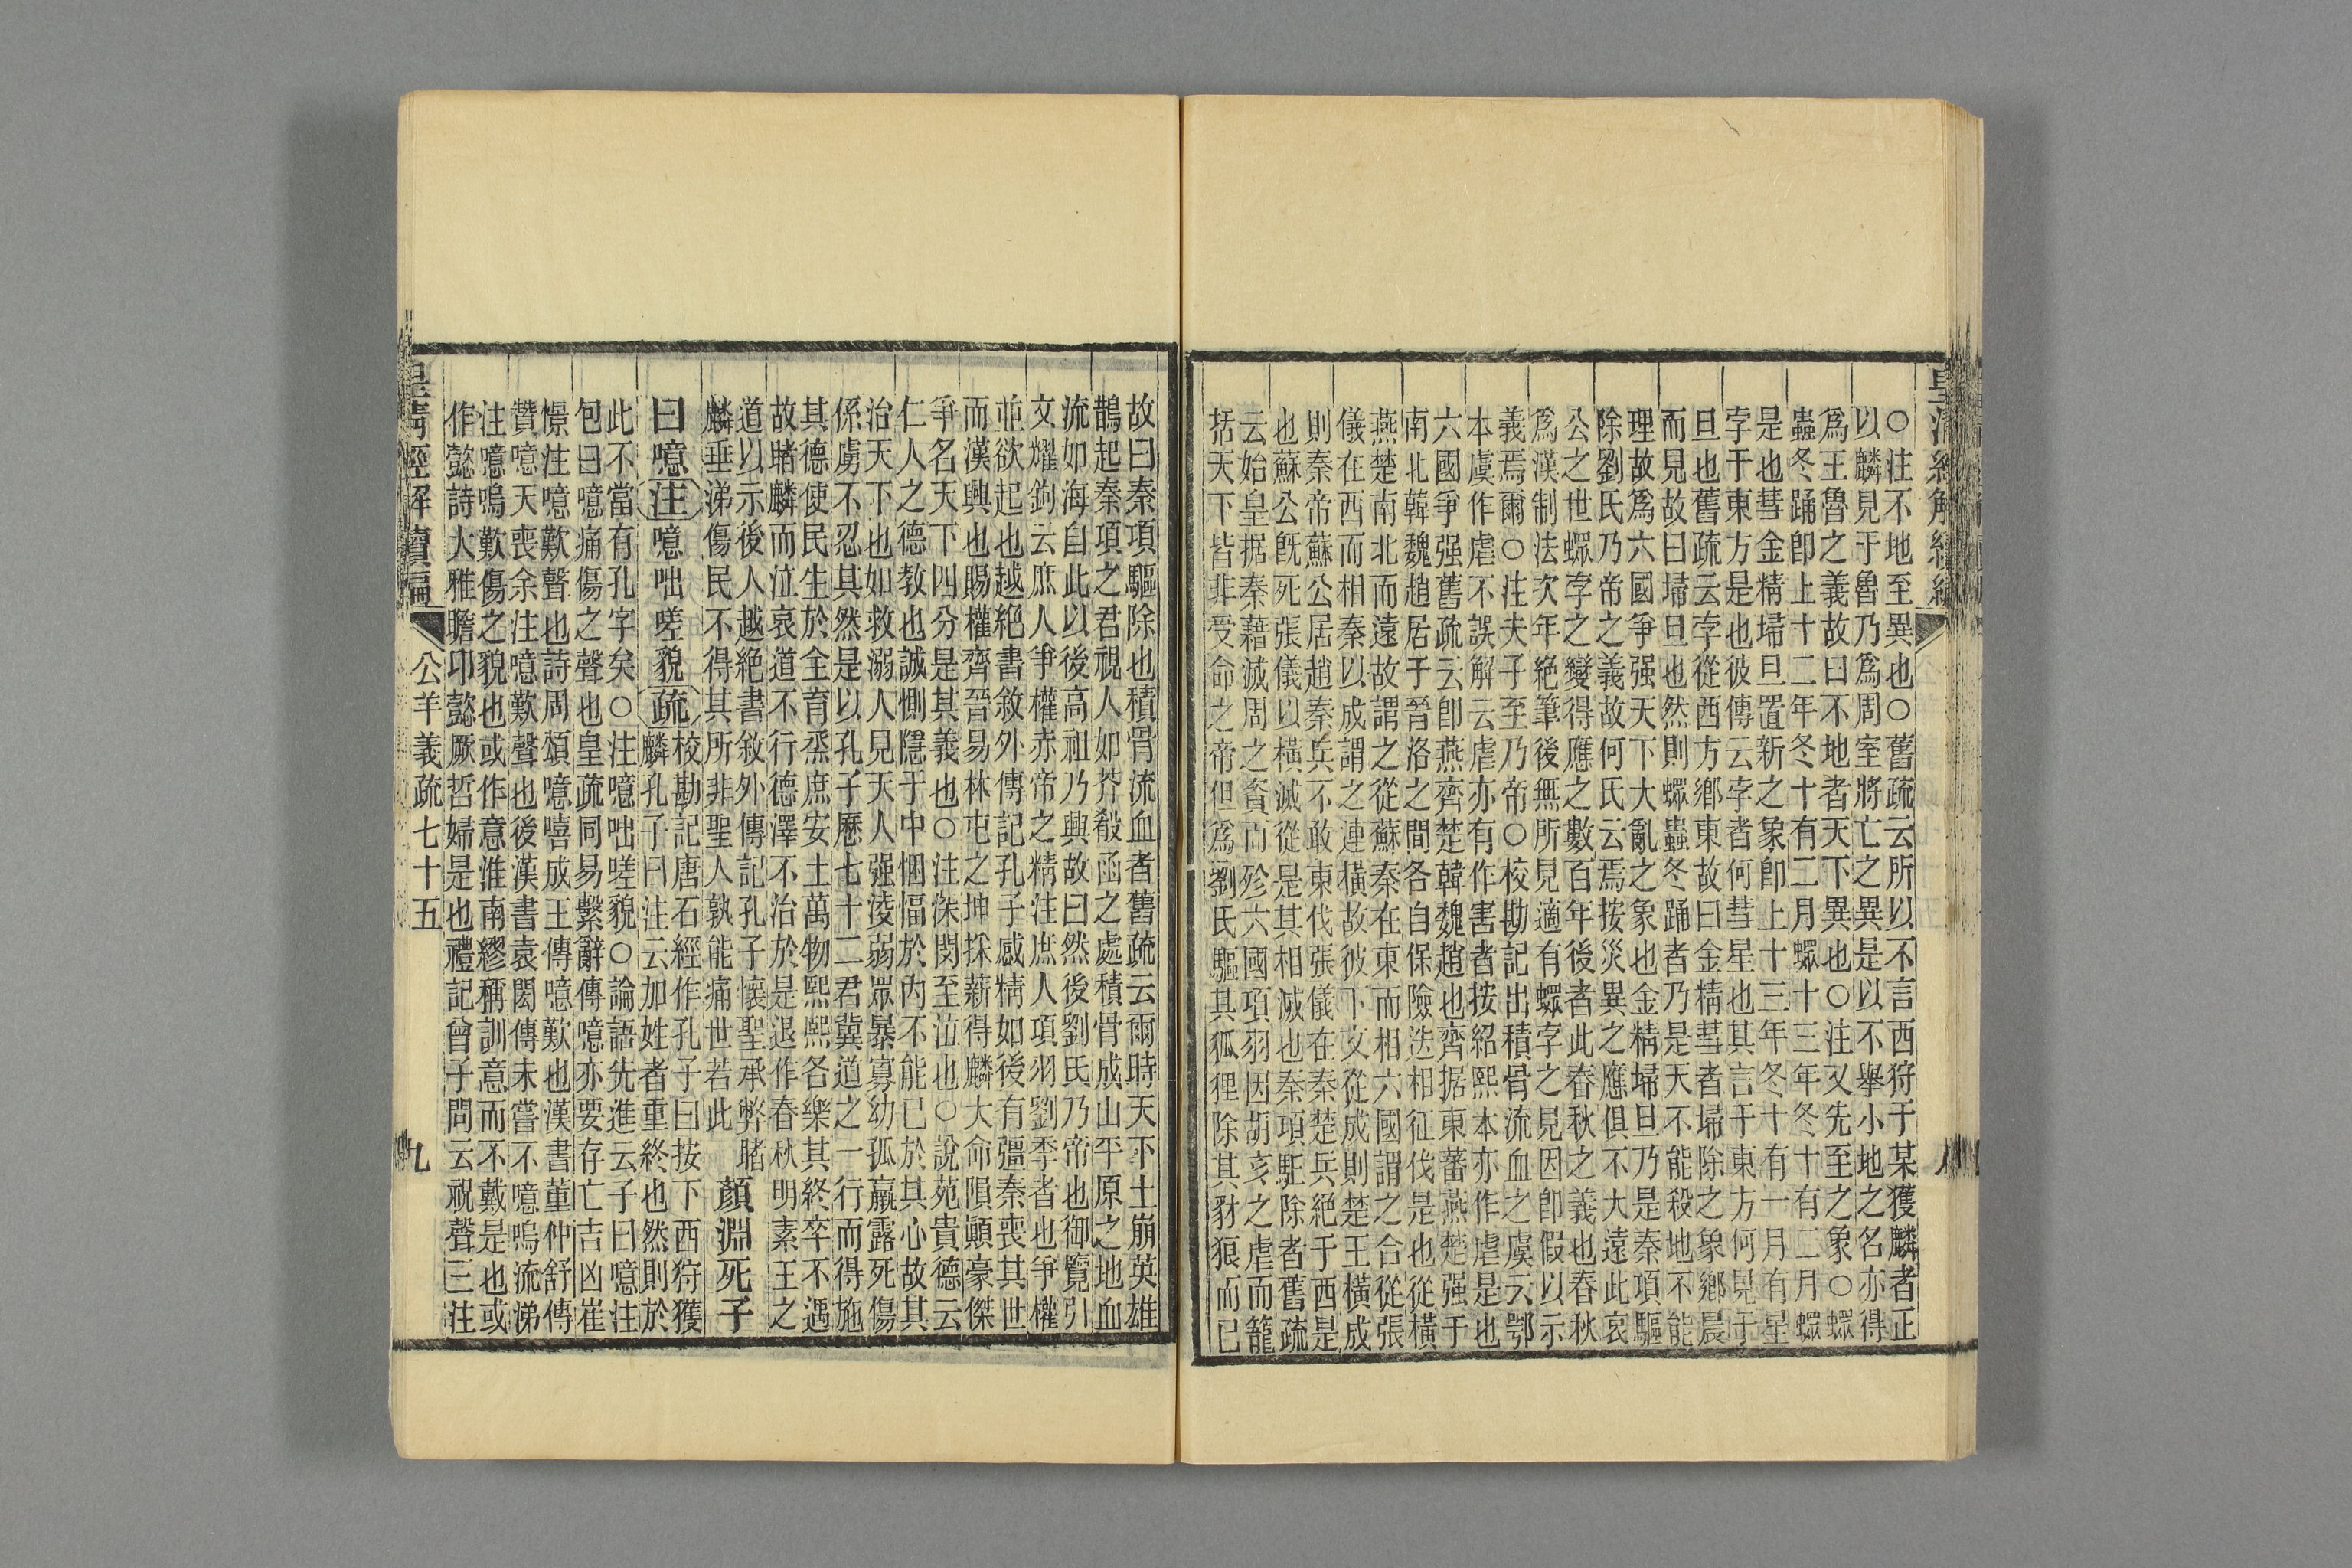 ○注不地至異也○舊疏云所以不言西狩于某獲麟者正
以麟見于魯乃爲周室將亡之異是以不舉小地之名亦得
爲王魯之義故曰不地者天下異也○注又先至之象○螺
蟲冬踊卽上十二年冬十有二月螺十三年冬十有二月螺
是也彗金精埽旦置新之象卽上十三年冬十有一月有星
孛于東方是也彼傳云孛者何彗星也其言于東方何見于
旦也舊疏云孛從西方鄉東故曰金精彗者埽除之象鄉晨
而見故曰埽旦也然則螺蟲冬踊者乃是天不能殺地不能
理故爲六國爭强天下大亂之象也金精埽旦乃是秦項驅
除劉氏乃帝之義故何氏云焉按災異之應俱不大遠此哀
公之世螺孛之變得應之數百年後者此春秋之義也春秋
爲漢制法次年絶筆後無所見適有螺孛之見因卽假以示
義焉爾○注夫子至乃帝○校勘記出積骨流血之虞云鄂
本虞作虐不誤解云虐亦有作害者按紹熙本亦作虐是也
六國爭强舊疏云卽燕齊楚韓魏趙也齊据東蕃燕楚强于
南北韓魏趙居于晉洛之間各自保險迭相征伐是也從橫
燕楚南北而遠故謂之從蘇秦在東而相六國謂之合從張
儀在西而相秦以成謂之連橫故彼下文從成則楚王橫成
則秦帝蘇公居趙秦兵不敢東伐張儀在秦楚兵絶于西是
也蘇公旣死張儀以橫滅從是其相滅也秦項駈除者舊疏
云始皇据秦藉滅周之資而殄六國項羽因胡亥之虐而籠
括天下皆非受命之帝但爲劉氏驅其狐狸除其豺狼而已
故曰秦項驅除也積骨流血者舊疏云爾時天下土崩英雄
鵲起秦項之君視人如芥殺函之處積骨成山平原之地血
流如海自此以後高祖乃興故曰然後劉氏乃帝也御覽引
文耀鉤云庶人爭權赤帝之精注庶人項羽劉季者也爭權
並欲起也越絕書敘外傳記孔子感精如後有彊秦喪其世
而漢興也賜權齊晉易林屯之坤採薪得麟大命隕顚豪傑
爭名天下四分是其義也○注洙閔至泣也○說苑貴德云
仁人之德教也誠惻隱于中悃愊於內不能已於其心故其
治天下也如救溺人見天人强淩弱眾暴寡幼孤羸露死傷
係虜不忍其然是以孔子歷七十二君冀道之一行而得施
其德使民生於全育烝庶安土萬物熙熙各樂其終卒不遇
故睹麟而泣哀道不行德澤不洽於是退作春秋明素王之
道以示後人越絕書敘外傳記孔子懷聖承弊睹
麟垂涕傷民不得其所非聖人孰能痛世若此
顏淵死子
曰噫注噫咄嗟貌疏校勘記唐石經作孔子曰按下西狩獲
麟孔子曰注云加姓者重終也然則於
此不當有孔字矣○注噫咄嗟貌○論語先進云子曰噫注
包曰噫痛傷之聲也皇疏同易繫辭傳噫亦要存亡吉凶崔
憬注噫歎聲也詩周頌噫嘻成王傳噫歎也漢書董仲舒傳
贊噫天喪余注噫歎聲也後漢書袁閎傳未嘗不噫嗚流涕
注噫嗚歎傷之貌也或作意淮南繆稱訓意而不戴是也或
作懿詩大雅瞻卬懿厥哲婦是也禮記曾子問云祝聲三注
公羊義疏七十五
九